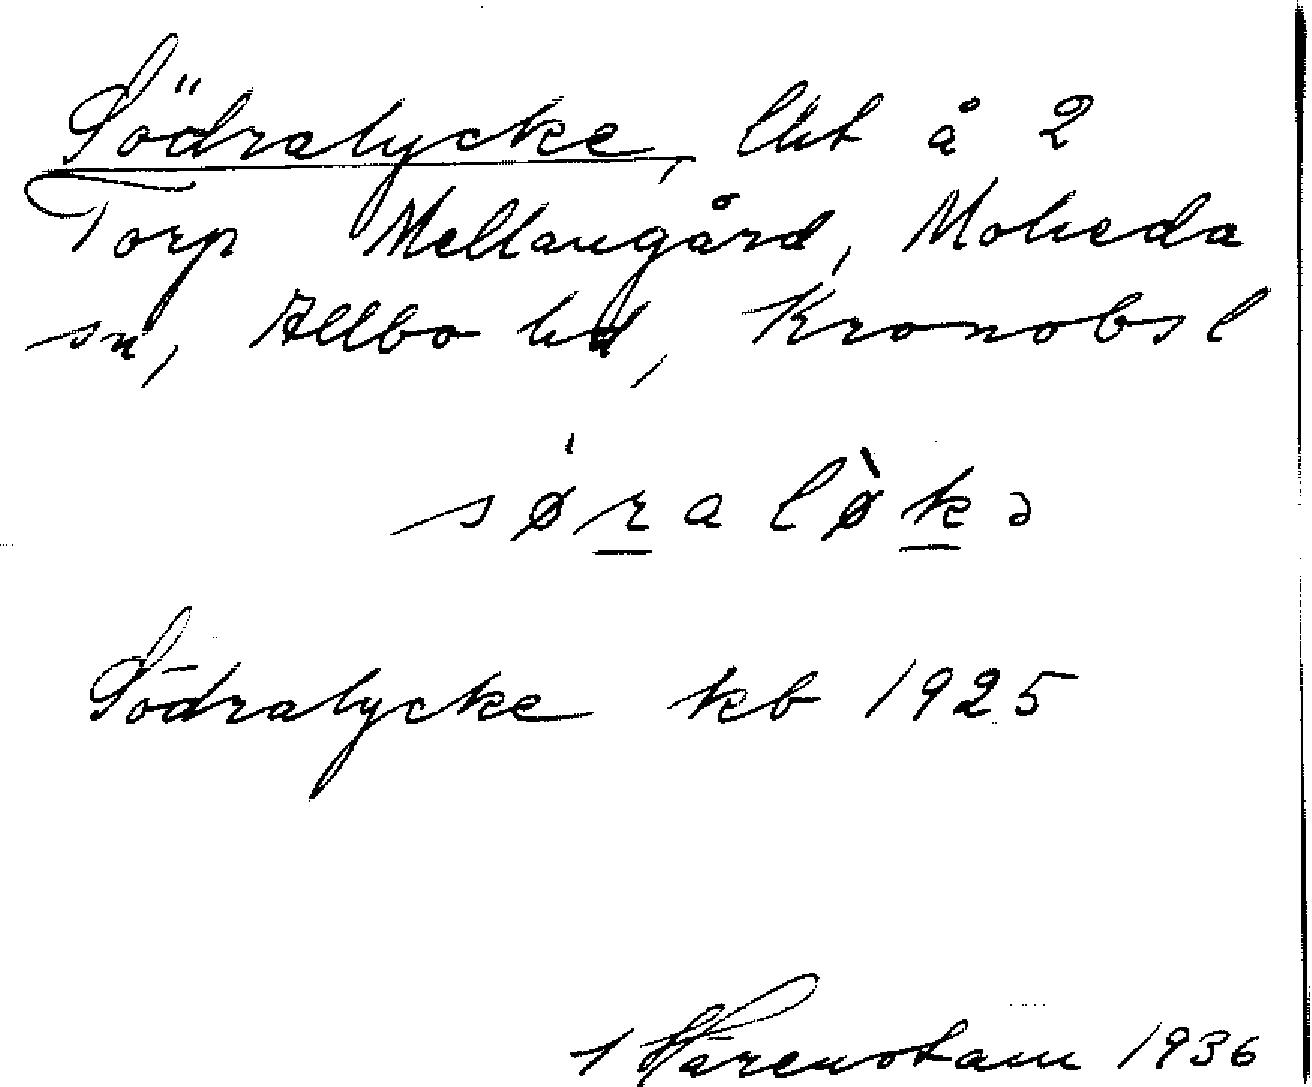 Södralycke, lht å 2
Torp Mellangård, Moheda
sn, Allbo hd, Kronobs l
sǿralø̀kə
Södralycke kb 1925
Härenstam 1936